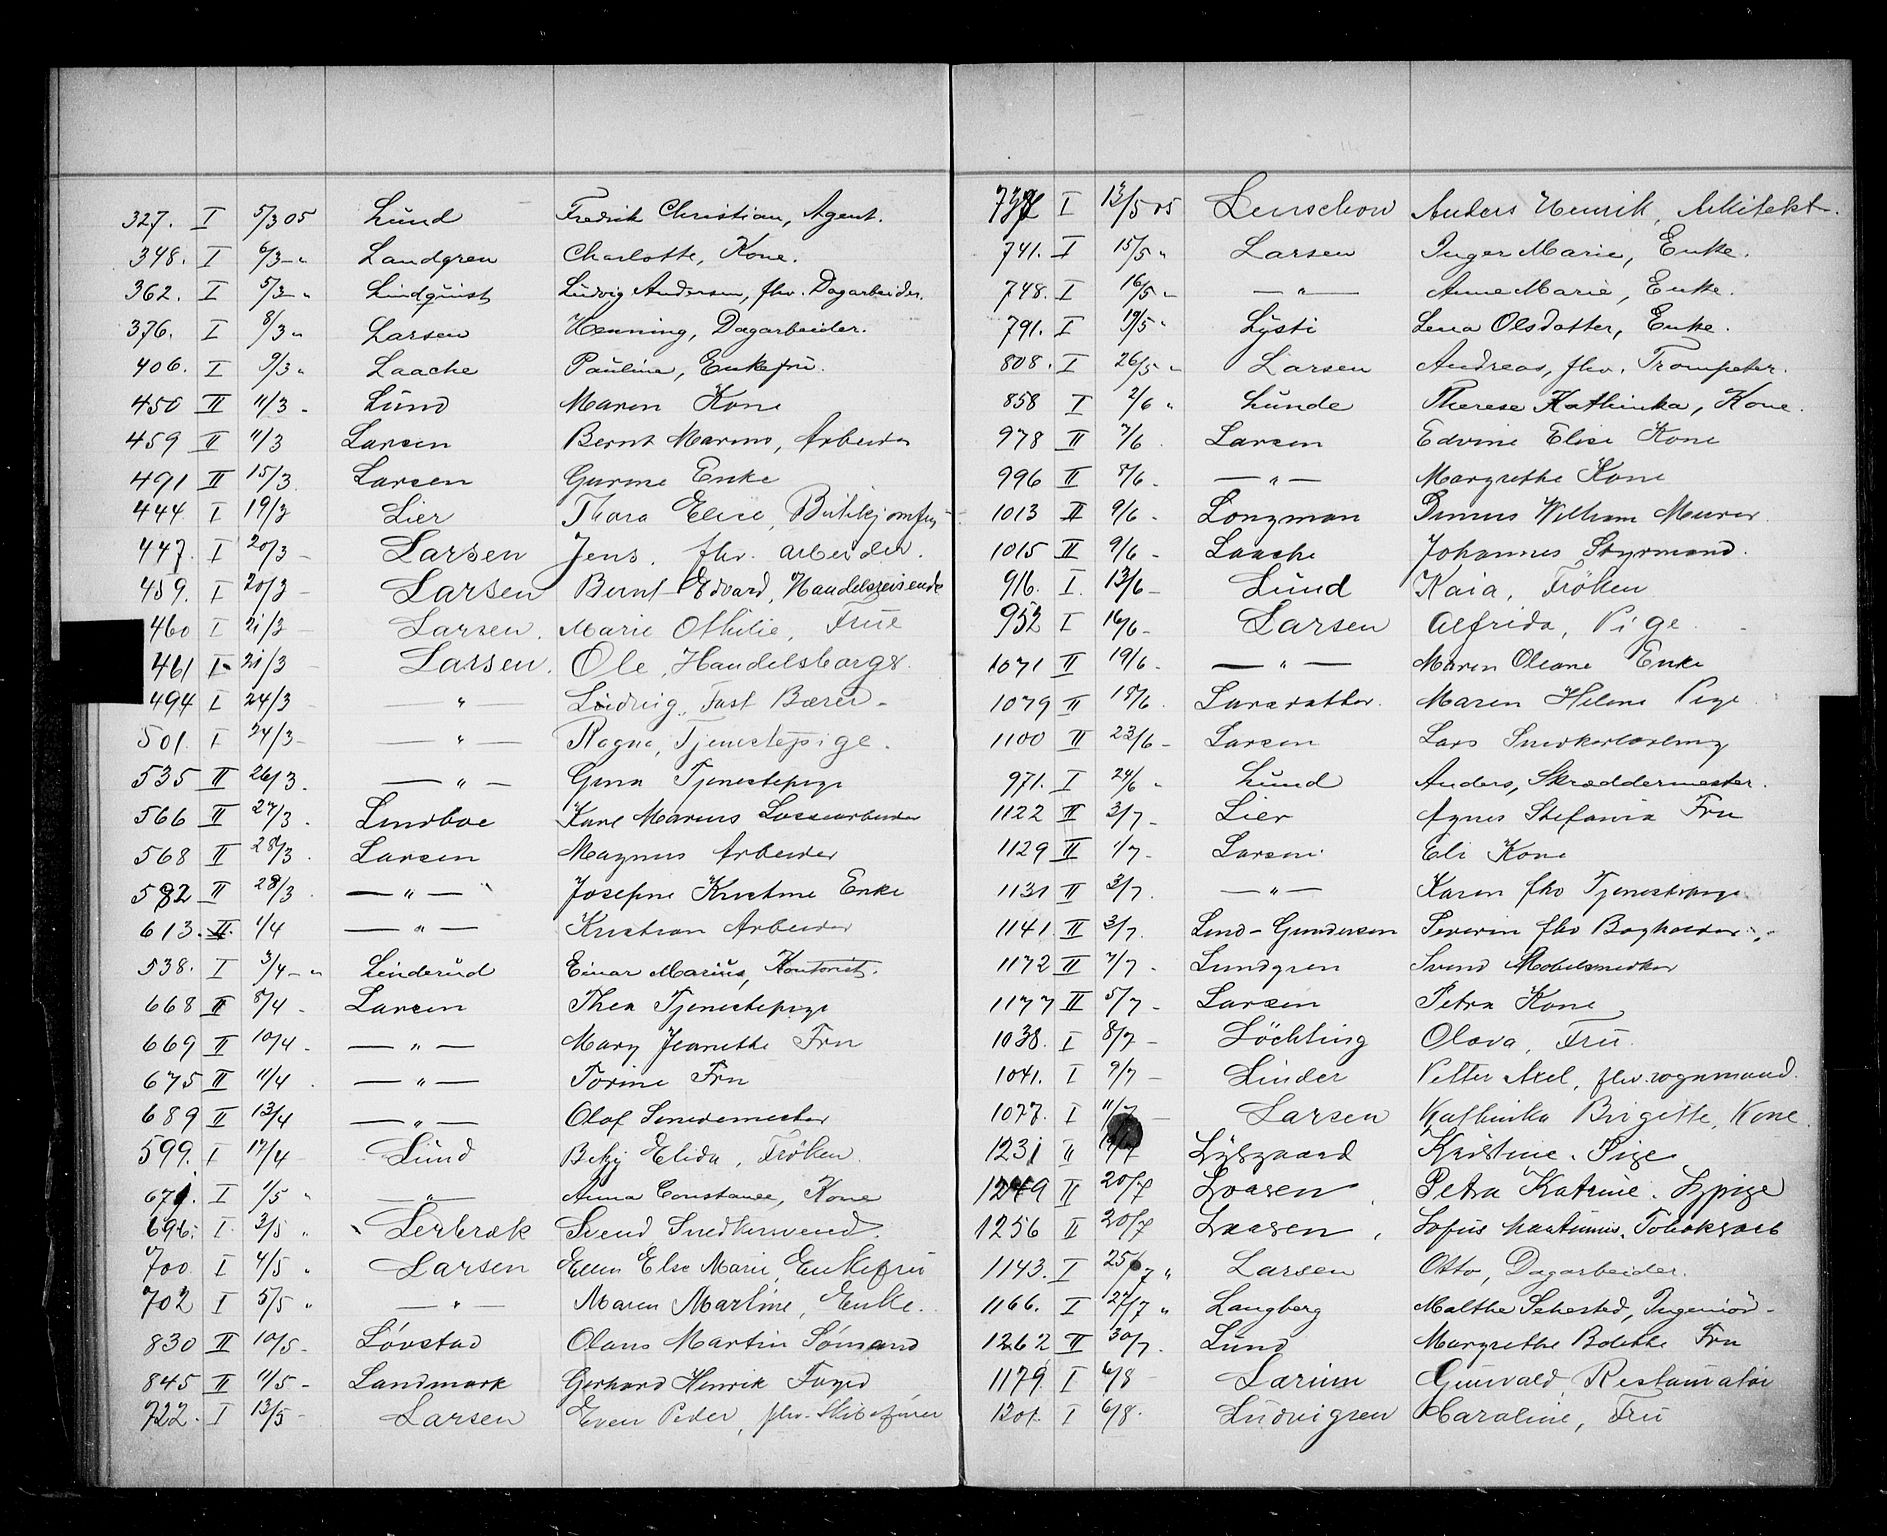 327. I 5/3 05 Lund Fredrik Christian, Agent.
348. I 6/3 - " Landgren Charlotte, Kone.
362. I 5/3 - " Lindquist Ludvig Andersen, fhv. Dagarbeider.
376. I 8/3 " Larsen Henning, Dagarbeider.
406. I 9/3 " Laache Pauline, Enkefru.
450 II 11/3 - Lund Maren Kone
459 II 11/3 Larsen Bernt Marius, Arbeider
491 II 15/3 Larsen Gurine Enke
444 I 19/3 Lier Thora Elise, Butikjomfru
447. I 20/3 - Larsen Jens. fhv. arbeider.
459. I 20/3 - Larsen Bernt Edvard, Handelsreisende
460 I 21/3 - Larsen. Marie Othilie, Frue
461 I 21/3 - Larsen. Ole, Handelsborger.
494 I 24/3 — " — Ludvig, Fast Bærer -
501. I 24/3 - — " — Ragna, Tjenestepige.
535 II 26/3 — " — Gina Tjenestepige
566 II 27/3 - Lindboe Karl Marius Lossearbeider
568 II 28/3 . Larsen Magnus Arbeider
582 II 28/3 . — " — Josefine Kristine Enke
613. II. 1/4 — " — Kristian Arbeider
538. I 3/4 - " Linderud Einar Marius, Kontorist.
668 II 8/4 - Larsen Thea Tjenestepige
669 II 10/4 - — " — Mary Jeanette Fru
675 II 11/4 . — " — Torine Fru
689 II 13/4 — " — Olaf Smedemester
599. I 17/4 - Lund Elida, Frøken.
671. I 1/5 " — " — Anna Constanse, Kone
696. I 3/5 " Lerbræk Svend Snedkersvend.
700 I 4/5 " Larsen Ellen Else Marie, Enkefru
702 I 5/5 " — " — Maren Martine, Enke.
830 II 10/5 - Løvstad Olaus Martin Sømand
845 II 11/5 - Landmark Gerhard Henrik Foged
722. I 13/5 - Larsen Even Peder, fhv. Skibsfører
I 13/5 05 Lenschow Anders Henrik, Arkitekt.
741. I 15/5 " Larsen Inger Marie, Enke.
748. I 16/5 " — " — Anne Marie, Enke.
791. I 19/5 " Lysti Lena Olsdatter, Enke.
808. I 26/5 " Larsen Andreas, fhv. Trompeter.
858 I 2/6 " Lunde Therese Kathinka, Kone.
978 II 7/6 . Larsen Edvine Elise Kone
996 II 8/6 . — " — Margrethe Kone
1013 II 9/6 - Longman Dinnus William Murer
1015 II 9/6 - Laache Johannes Styrmand.
916. I. 13/6 - Lund Kaia, Frøken
952 I 16/6 - Larsen Alfrida, Pige.
1071 II 19/6 - — " — Maren Oleane Enke
1079 II 18/6 . Larsdatter. Maren Helene Pige
1100 II 23/6 - Larsen Lars Snedkerlærling
971. I 24/6 " Lund Anders, Skræddermester.
1122 II 3/7 - Lier Agnes Stefania Fru
1129 II 1/7 - Larsen Eli Kone
1131 II 3/7 . — " — Karen fhv Tjenestepige
1141 II 3/7 . Lind-Gundersen Severin fhv Bogholder
1172 II 7/7 - Lundgren Svend Møbelsnedker
1177 II 5/7 - Larsen Petra Kone
1038. I 8/7 - Löchting Olava, Fru.
1041. I 9/7 - Linder Petter Axel, fhv. vognmand.
1077. I 11/7 - Larsen Kathinka Birgitte, Kone.
1231 II Lysgaard Kristine. Pige
1249 II 20/7 Laasen . Petra Katrine. Sypige
1256 II 20/7 Laasen , Sofus Martinius. Tobaksarb
1143. I 25/7 " Larsen Otto, Dagarbeider.
1166. I 27/7 " Langberg Malthe Sehested, Ingeniør -
1262 II 30/7 . Lund Margrethe Bolette Fru
1179 I 6/8 - Larum Gunvald, Restauratør
1201. I 6/8 . Ludvigsen Caroline, Fru